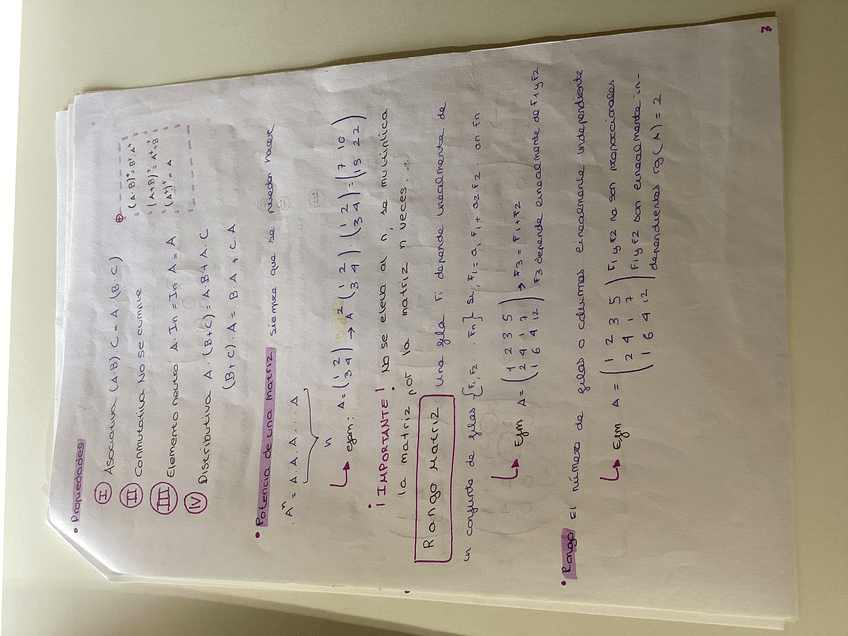 • Propiedades
I Asociativa (A·B)·C = A·(B·C)
II Conmutativa No se cumple
III Elemento neutro A·In = In·A = A
IV Distributiva A·(B+C) = A·B + A·C
(B+C)·A = B·A + C·A
(A·B)ᵗ = Bᵗ·Aᵗ
(A+B)ᵗ = Aᵗ+Bᵗ
(Aᵗ)ᵗ = A
• Potencia de una matriz siempre que se puedan hacer
Aⁿ = A·A·A·...·A
n
ejm: A = (1 2 / 3 4) → A² (1 2 / 3 4)·(1 2 / 3 4) = (7 10 / 15 22)
¡IMPORTANTE! No se eleva al n, se multiplica
la matriz por la matriz n veces...
Rango Matriz Una fila Fi depende linealmente de
un conjunto de filas {F1, F2 ... Fn} si, F1 = a1 F1 + a2 F2 ... an Fn
Ejm A = (1 2 3 5 / 2 4 1 7 / 1 6 4 12) → F3 = F1 + F2
F3 depende linealmente de F1 y F2
• Rango El número de filas o columnas linealmente independiente
Ejm A = (1 2 3 5 / 2 4 1 7 / 1 6 4 12) F1 y F2 no son proporcionales
F1 y F2 son linealmente in-
dependientes rg(A) = 2
3